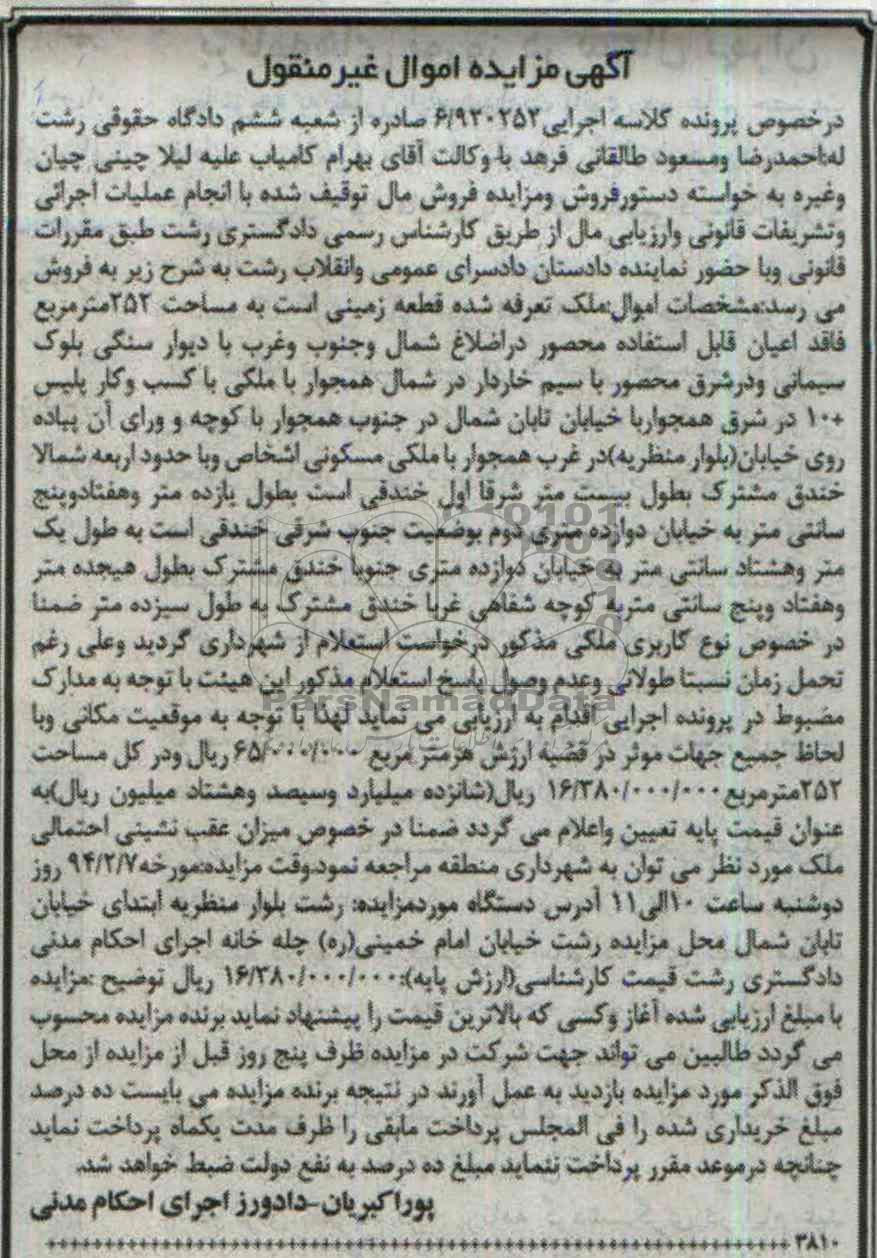 آگهی مزایده اموال غیر منقول
درخصوص پرونده کلاسه اجرایی۶/۹۲۰۲۵۲ صادره از شعبه ششم دادگاه حقوقی رشت
له:احمدرضا ومسعود طالقانی فرهد با وکالت آقای بهرام کامیاب علیه لیلا چینی چیان
وغیره به خواسته دستورفروش ومزایده فروش مال توقیف شده با انجام عملیات اجرائی
وتشریفات قانونی وارزیابی مال از طریق کارشناس رسمی دادگستری رشت طبق مقررات
قانونی وبا حضور نماینده دادستان دادسرای عمومی وانقلاب رشت به شرح زیر به فروش
می رسد:مشخصات اموال:ملک تعرفه شده قطعه زمینی است به مساحت ۲۵۲مترمربع
فاقد اعیان قابل استفاده محصور دراضلاع شمال وجنوب وغرب با دیوار سنگی بلوک
سیمانی ودرشرق محصور با سیم خاردار در شمال همجوار با ملکی با کسب وکار پلیس
+۱۰ در شرق همجواربا خیابان تابان شمال در جنوب همجوار با کوچه و ورای آن پیاده
روی خیابان(بلوار منظریه)در غرب همجوار با ملکی مسکونی اشخاص وبا حدود اربعه شمالا
خندق مشترک بطول بیست متر شرقا اول خندقی است بطول یازده متر وهفتادوپنج
سانتی متر به خیابان دوازده متری دوم بوضعیت جنوب شرقی خندقی است به طول یک
متر وهشتاد سانتی متر به خیابان دوازده متری جنوبا خندق مشترک بطول هیجده متر
وهفتاد وپنج سانتی متربه کوچه شفاهی غربا خندق مشترک به طول سیزده متر ضمنا
در خصوص نوع کاربری ملکی مذکور درخواست استعلام از شهرداری گردید وعلی رغم
تحمل زمان نسبتا طولانی وعدم وصول پاسخ استعلام مذکور این هیئت با توجه به مدارک
مضبوط در پرونده اجرایی اقدام به ارزیابی می نماید لهذا با توجه به موقعیت مکانی وبا
لحاظ جمیع جهات موثر در قضیه ارزش هرمتر مربع ۶۵/۰۰۰/۰۰۰ ریال ودر کل مساحت
۲۵۲مترمربع۱۶/۳۸۰/۰۰۰/۰۰۰ ریال(شانزده میلیارد وسیصد وهشتاد میلیون ریال)به
عنوان قیمت پایه تعیین واعلام می گردد ضمنا در خصوص میزان عقب نشینی احتمالی
ملک مورد نظر می توان به شهرداری منطقه مراجعه نمود.وقت مزایده:مورخه۹۴/۲/۷ روز
دوشنبه ساعت ۱۰الی۱۱ آدرس دستگاه موردمزایده: رشت بلوار منظریه ابتدای خیابان
تابان شمال محل مزایده رشت خیابان امام خمینی(ره) چله خانه اجرای احکام مدنی
دادگستری رشت قیمت کارشناسی(ارزش پایه):۱۶/۳۸۰/۰۰۰/۰۰۰ ریال توضیح :مزایده
با مبلغ ارزیابی شده آغاز وکسی که بالاترین قیمت را پیشنهاد نماید برنده مزایده محسوب
می گردد طالبین می تواند جهت شرکت در مزایده ظرف پنج روز قبل از مزایده از محل
فوق الذکر مورد مزایده بازدید به عمل آورند در نتیجه برنده مزایده می بایست ده درصد
مبلغ خریداری شده را فی المجلس پرداخت مابقی را ظرف مدت یکماه پرداخت نماید
چنانچه درموعد مقرر پرداخت ننماید مبلغ ده درصد به نفع دولت ضبط خواهد شد.
پوراکبریان-دادورز اجرای احکام مدنی
۳۸۱۰
ParsNamadData